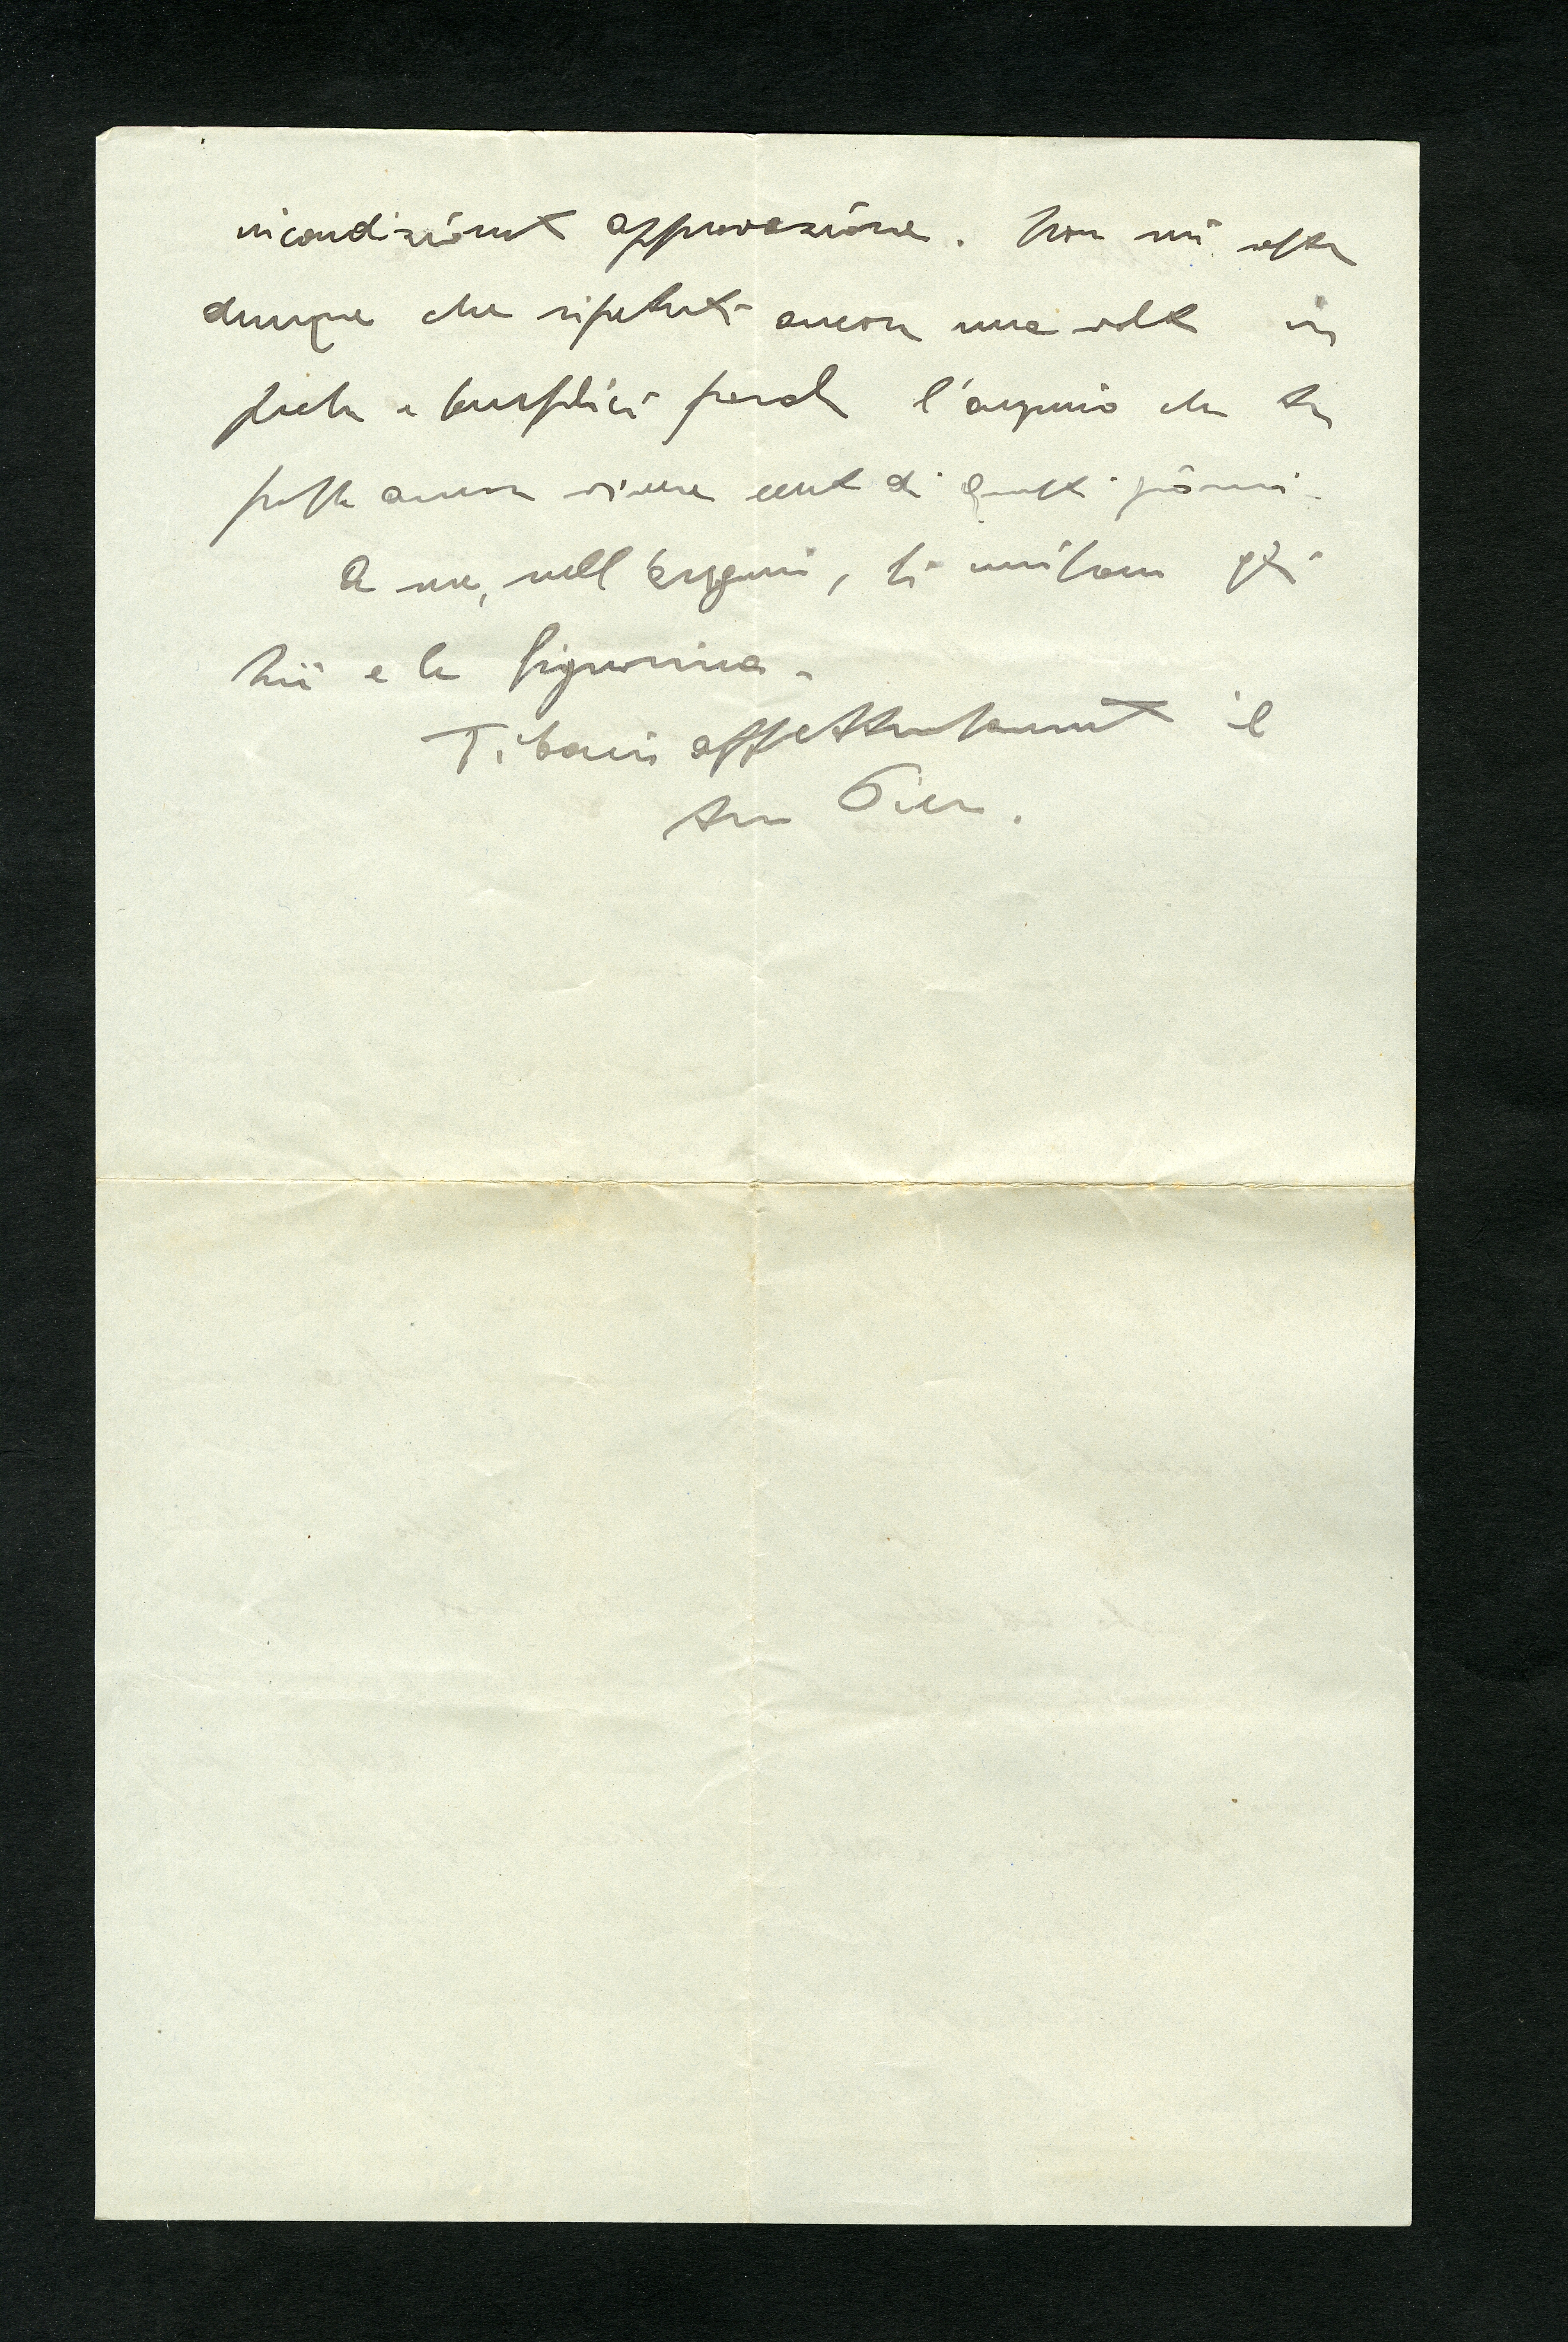 incondizionata approvazione. Non mi resta
dunque che ripeterti ancora una volta in
poche e semplici parole l'augurio che tu
possa ancora vivere cento di questi giorni.
A me, nell'augurio, si uniscono gli
zii e la signorina.
Ti bacia affettuosamente il
tuo Piero.